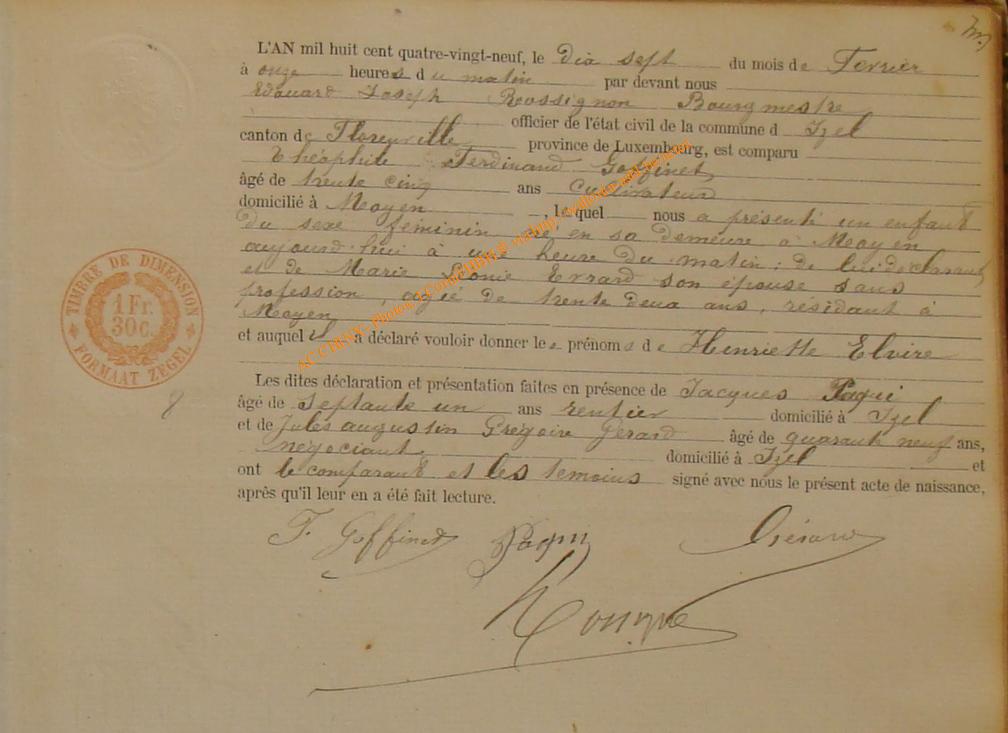 L'AN mil huit cent quatre-vingt-neuf, le Dix sept du mois de Fevrier
à onze heures du matin par devant nous
Edouard Joseph Rossignon Bourgmestre
officier de l'état civil de la commune d Izel
canton de Florenville province de Luxembourg, est comparu
Théophile Ferdinand Goffinet
âgé de trente cinq ans Cultivateur
domicilié à Moyen , lequel nous a présenté un enfant
du sexe féminin né en sa demeure à Moyen
aujourd'hui à une heure du matin, de lui déclarant
et de Marie Léonie Evrard son épouse sans
profession, agée de trente deux ans, résidant à
Moyen
et auquel il a déclaré vouloir donner les prénoms de Henriette Elvire
Les dites déclaration et présentation faites en présence de Jacques Paqui
âgé de Septante un ans rentier domicilié à Izel
et de Jules augustin Grégoire Gerard âgé de quarante neuf ans,
négociant domicilié à Izel et
ont le comparant et les temoins signé avec nous le présent acte de naissance,
après qu'il leur en a été fait lecture.
TIMBRE DE DIMENSION
1 Fr.
30 c.
FORMAAT ZEGEL
8
T. Goffinet Paqui Gérard